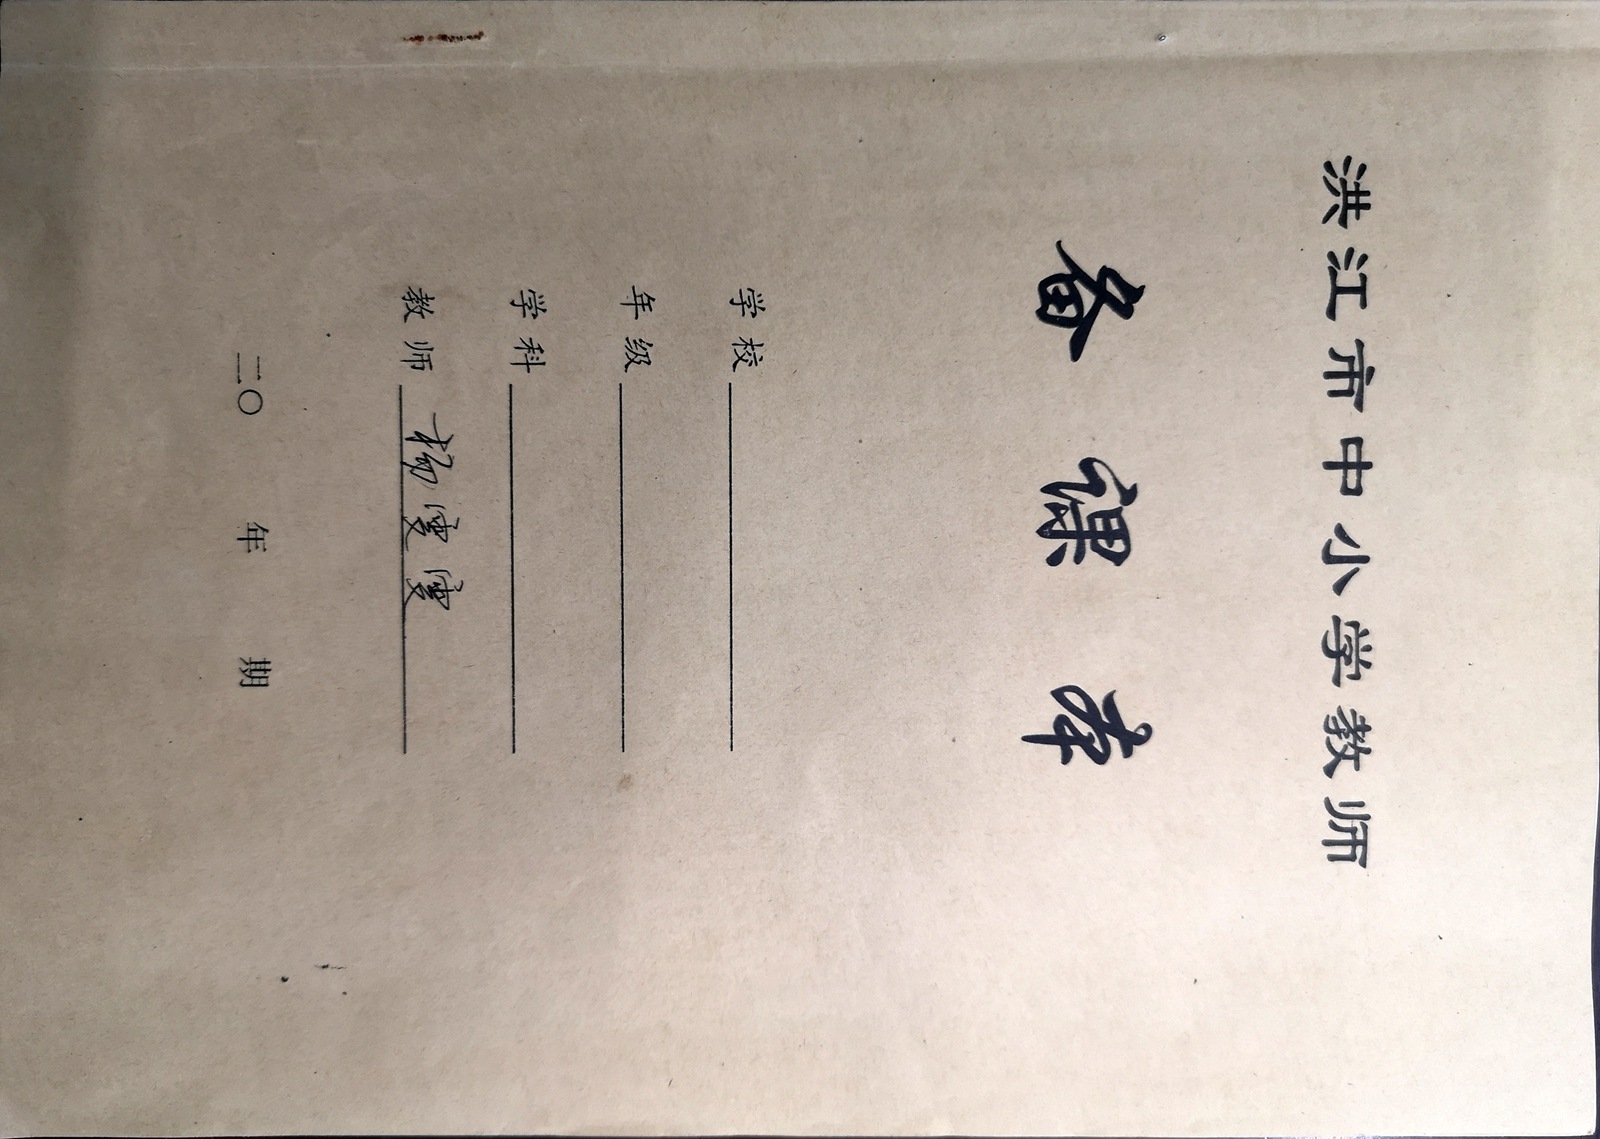 洪江市中小学教师
备课本
学校
年级
学科
教师 杨
二〇 年 期